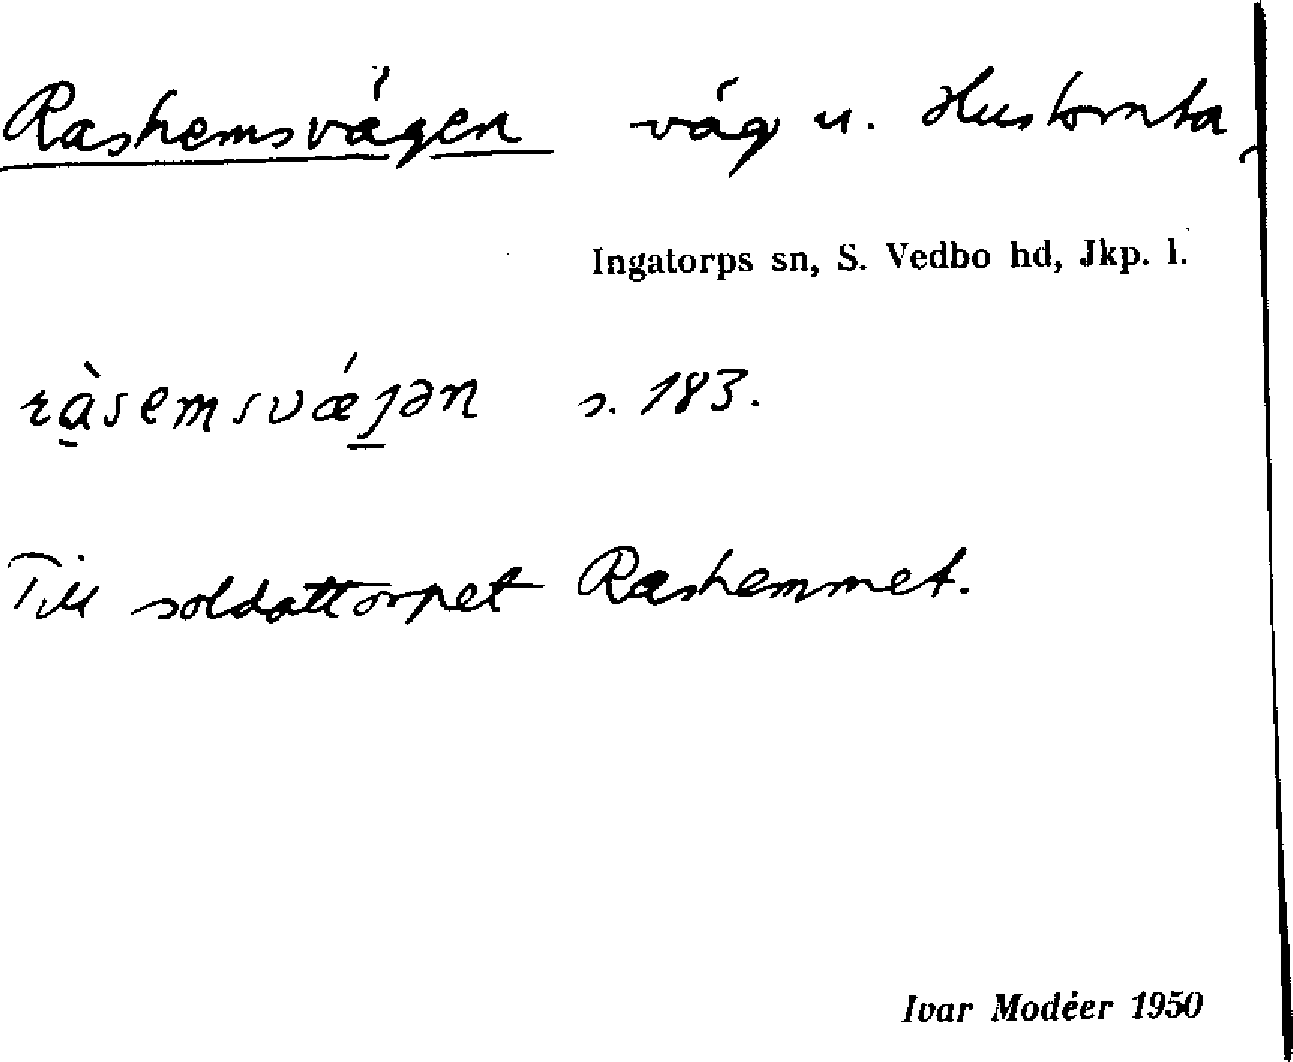 Rashemsvägen väg u. Hustomta
Ingatorps sn, S. Vedbo hd, Jkp. l.
ràsemsvǽjən s. 183.
Till soldattorpet Rashemmet.
Ivar Modéer 1950